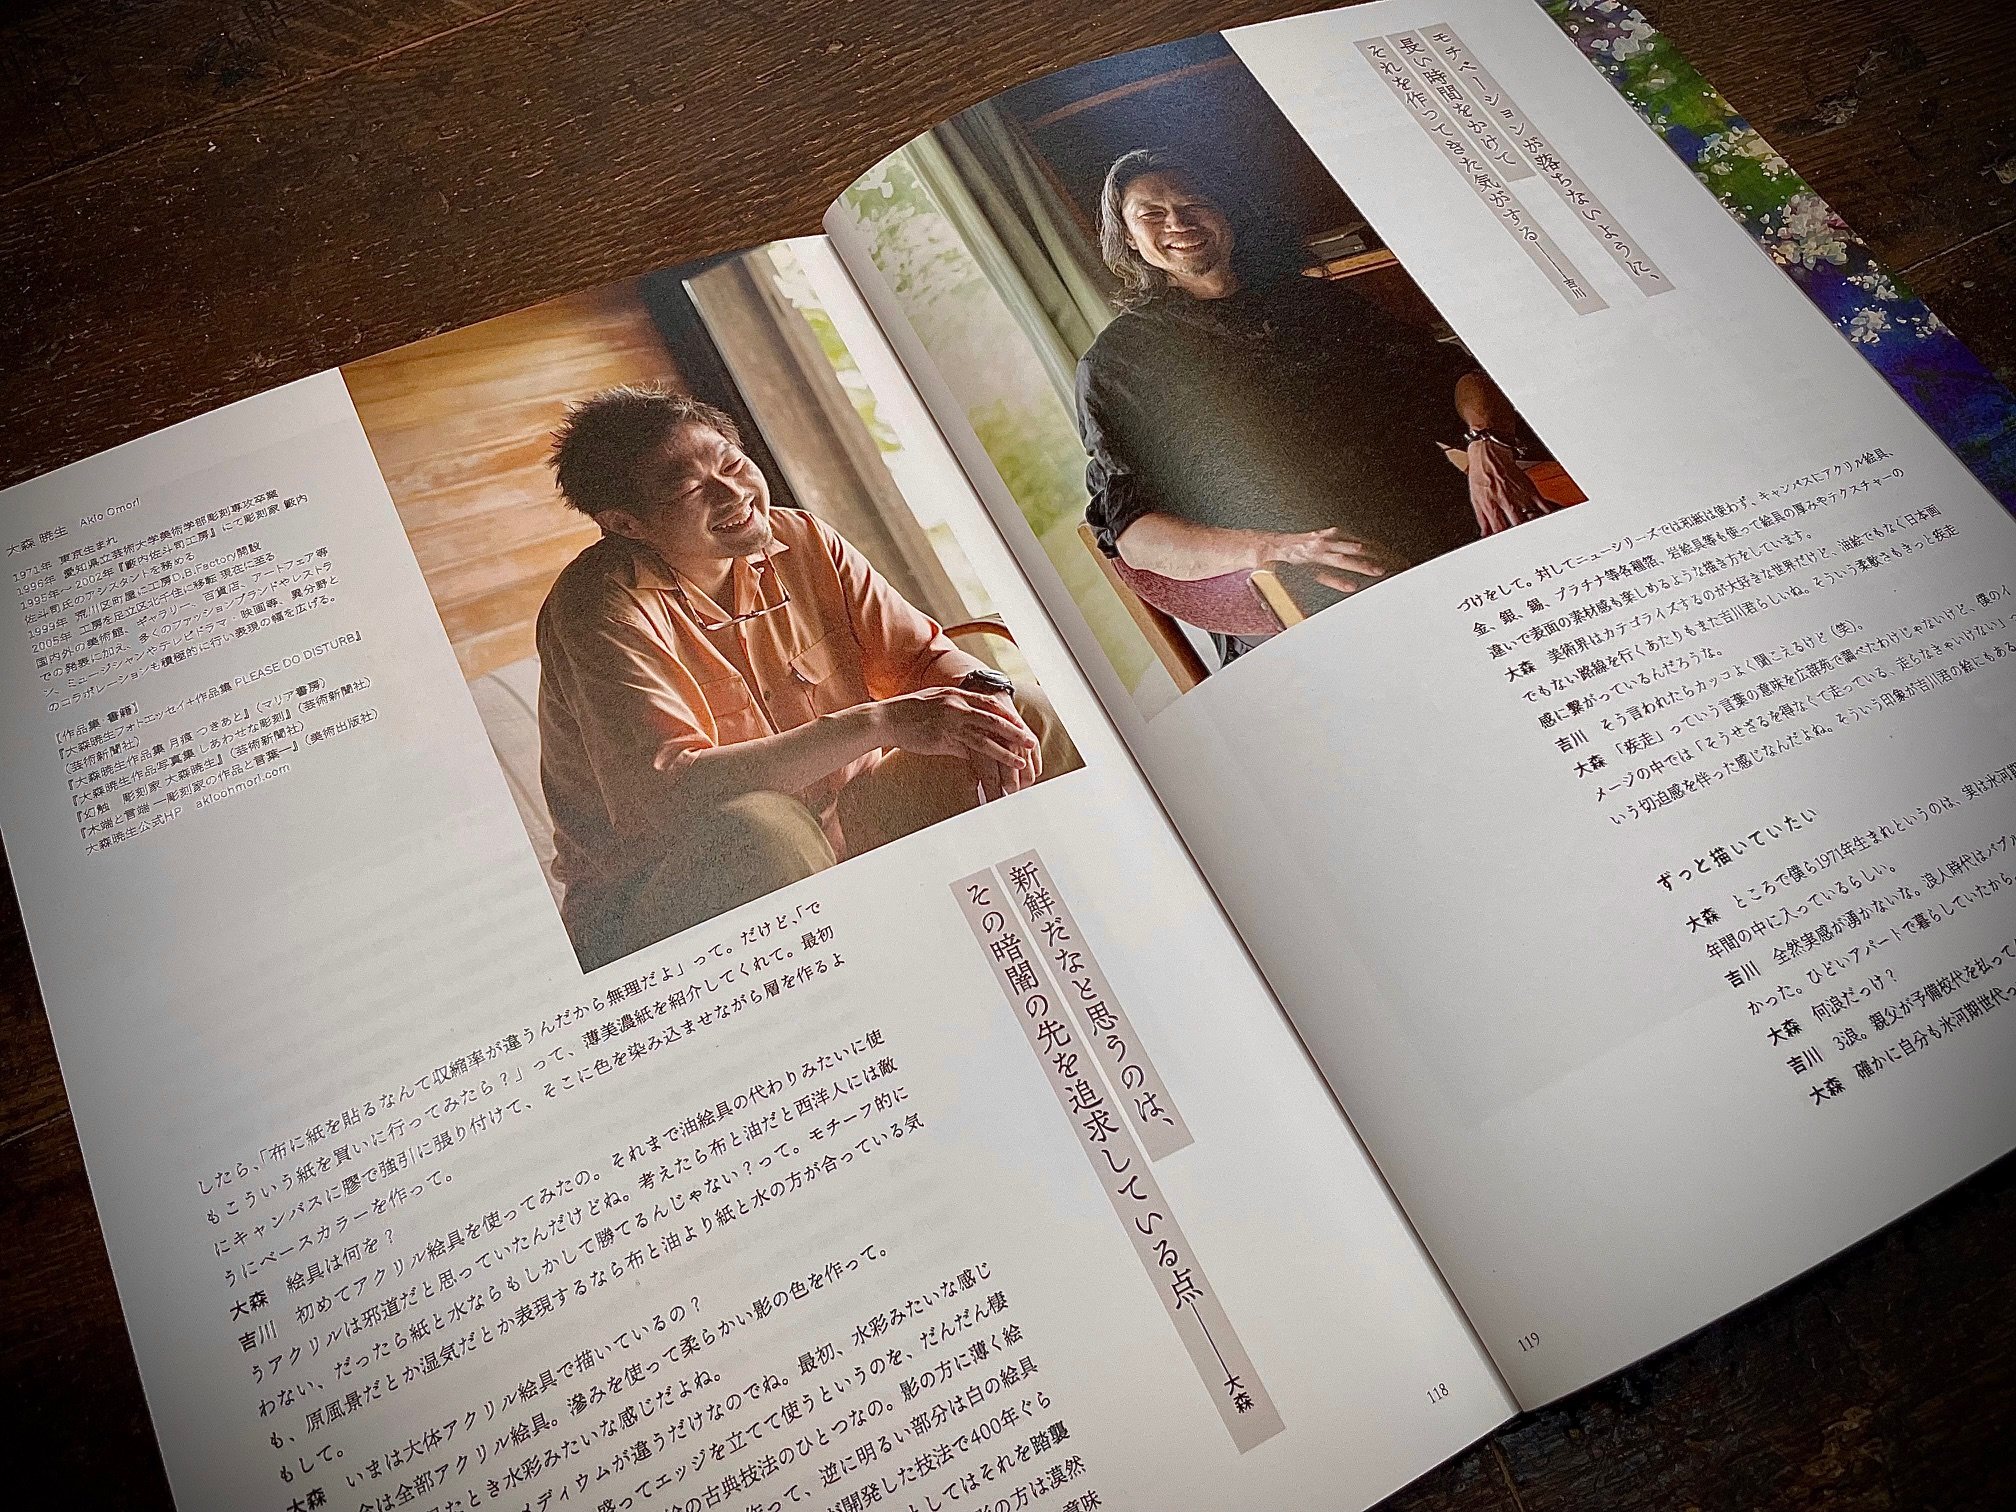 大森 暁生　Akio Omori
1971年 東京生まれ
1996年 愛知県立芸術大学美術学部彫刻専攻卒業
1995年～2002年『籔内佐斗司工房』にて彫刻家 籔内
佐斗司氏のアシスタントを務める
1999年 荒川区町屋に工房D.B.Factory開設
2005年 工房を足立区北千住に移転 現在に至る
国内外の美術館、ギャラリー、百貨店、アートフェア等
での発表に加え、多くのファッションブランドやレストラ
ン、ミュージシャンやテレビドラマ・映画等、異分野と
のコラボレーションも積極的に行い表現の幅を広げる。
【作品集 書籍】
『大森暁生フォトエッセイ+作品集 PLEASE DO DISTURB』
（芸術新聞社）
『大森暁生作品集 月痕 つきあと』（マリア書房）
『大森暁生作品写真集 しあわせな彫刻』（芸術新聞社）
『幻触 彫刻家 大森暁生』（芸術新聞社）
『木端と言端 ―彫刻家の作品と言葉―』（美術出版社）
大森暁生公式HP　akioohmori.com
したら、「布に紙を貼るなんて収縮率が違うんだから無理だよ」って。だけど、「で
もこういう紙を買いに行ってみたら？」って、薄美濃紙を紹介してくれて。最初
にキャンバスに膠で強引に張り付けて、そこに色を染み込ませながら層を作るよ
うにベースカラーを作って。
大森　絵具は何を？
吉川　初めてアクリル絵具を使ってみたの。それまで油絵具の代わりみたいに使
うアクリルは邪道だと思っていたんだけどね。考えたら布と油だと西洋人には敵
わない、だったら紙と水ならもしかして勝てるんじゃない？って。モチーフ的に
も、原風景だとか湿気だとか表現するなら布と油より紙と水の方が合っている気
もして。
大森　いまは大体アクリル絵具で描いているの？
は全部アクリル絵具。滲みを使って柔らかい影の色を作って。
たとき水彩みたいな感じだよね。
メディウムが違うだけなのでね。最初、水彩みたいな感じ
盛ってエッジを立てて使うというのを、だんだん棲
の古典技法のひとつなの。影の方に薄く絵
作って、逆に明るい部分は白の絵具
が開発した技法で400年ぐら
としてはそれを踏襲
の方は漠然
意味
新鮮だなと思うのは、
その暗闇の先を追求している点――大森
118
モチベーションが落ちないように、
長い時間をかけて
それを作ってきた気がする――吉川
づけをして。対してニューシリーズでは和紙は使わず、キャンバスにアクリル絵具、
金、銀、錫、プラチナ等各種箔、岩絵具等も使って絵具の厚みやテクスチャーの
違いで表面の素材感も楽しめるような描き方をしています。
大森　美術界はカテゴライズするのが大好きな世界だけど、油絵でもなく日本画
でもない路線を行くあたりもまた吉川君らしいね。そういう柔軟さもきっと疾走
感に繋がっているんだろうな。
吉川　そう言われたらカッコよく聞こえるけど（笑）。
大森　「疾走」っていう言葉の意味を広辞苑で調べたわけじゃないけど、僕のイ
メージの中では「そうせざるを得なくて走っている、走らなきゃいけない」っ
いう切迫感を伴った感じなんだよね。そういう印象が吉川君の絵にもある
ずっと描いていたい
大森　ところで僕ら1971年生まれというのは、実は氷河期
年間の中に入っているらしい。
吉川　全然実感が湧かないな。浪人時代はバブル
かった。ひどいアパートで暮らしていたから。
大森　何浪だっけ？
吉川　3浪。親父が予備校代を払って
大森　確かに自分も氷河期世代っ
119